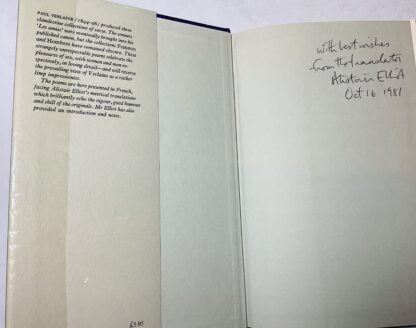 PAUL VERLAINE (1844-96) produced three
clandestine collections of verse. The sonnets
'Les amies' were eventually brought into his
published canon, but the collections Femmes
and Hombres have remained obscure. These
strangely unrespectable poems celebrate the
pleasures of sex, with women and men re-
spectively, in loving detail—and will reverse
the prevailing view of Verlaine as a rather
limp impressionist.
The poems are here presented in French,
facing Alistair Elliot's metrical translations
which brilliantly echo the vigour, good humour
and skill of the originals. Mr Elliot has also
provided an introduction and notes.
£5.95
With best wishes
from the translator
Alistair Elliot
Oct 16 1981